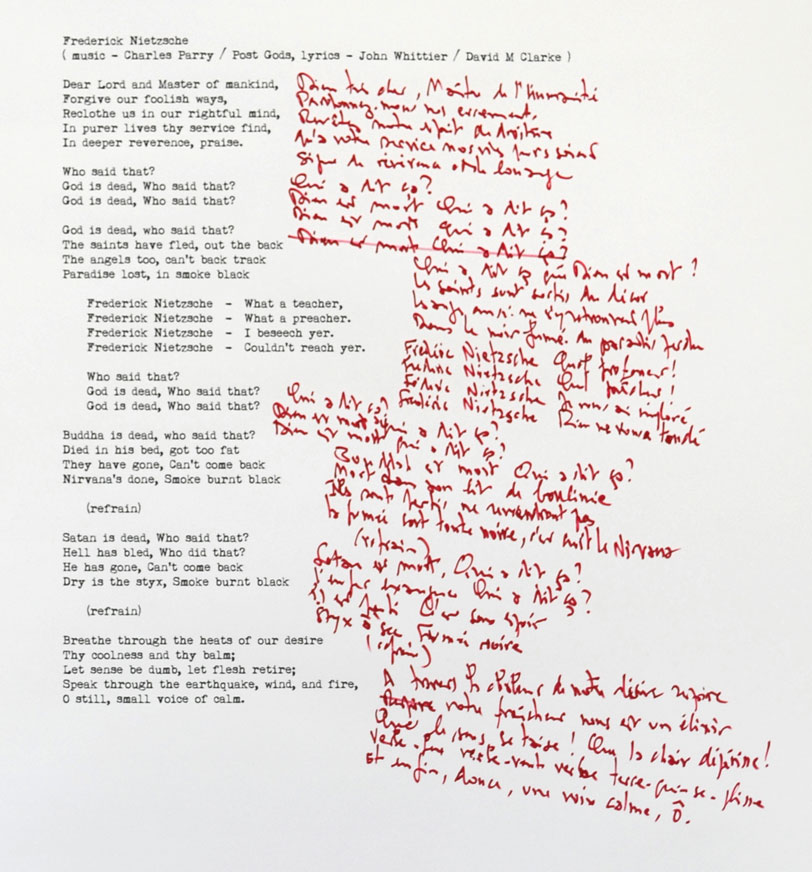 Frederick Nietzsche
( music - Charles Parry / Post Gods, lyrics - John Whittier / David M Clarke )
Dear Lord and Master of mankind,
Forgive our foolish ways,
Reclothe us in our rightful mind,
In purer lives thy service find,
In deeper reverence, praise.
Who said that?
God is dead, Who said that?
God is dead, Who said that?
God is dead, who said that?
The saints have fled, out the back
The angels too, can't back track
Paradise lost, in smoke black
Frederick Nietzsche - What a teacher,
Frederick Nietzsche - What a preacher.
Frederick Nietzsche - I beseech yer.
Frederick Nietzsche - Couldn't reach yer.
Who said that?
God is dead, Who said that?
God is dead, Who said that?
Buddha is dead, who said that?
Died in his bed, got too fat
They have gone, Can't come back
Nirvana's done, Smoke burnt black
(refrain)
Satan is dead, Who said that?
Hell has bled, Who did that?
He has gone, Can't come back
Dry is the styx, Smoke burnt black
(refrain)
Breathe through the heats of our desire
Thy coolness and thy balm;
Let sense be dumb, let flesh retire;
Speak through the earthquake, wind, and fire,
O still, small voice of calm.
Dieu très cher, Maître de l'Humanité
Pardonnez-nous nos errements,
notre esprit de droiture
Qu'à votre service nos vies purs soient
Signe de révérence et de louange
Qui a dit ça?
Dieu est mort Qui a dit ça?
Dieu est mort Qui a dit ça?
Dieu est mort Qui a dit ça?
Qui a dit ça que Dieu est mort?
Les saints sont sortis du décor
Les anges aussi ne s'y retrouvent plus
Dans le noir fumé du paradis perdu
Frédéric Nietzsche Quel professeur!
Frédéric Nietzsche Quel prêcheur!
Frédéric Nietzsche Je vous ai imploré
Frédéric Nietzsche Rien ne vous a touché
Qui a dit ça?
Dieu est mort Qui a dit ça?
Dieu est mort qui a dit ça?
Bouddha est mort Qui a dit ça?
Mort dans son lit de boulimie
Ils sont partis, ne reviendront pas
La fumée sort toute noire, c'est cuit le Nirvana
(refrain)
Satan est mort, Qui a dit ça?
L'enfer exsangue Qui a dit ça?
Il est parti C'est sans espoir
Styx à sec, Fumée noire
(refrain)
A travers la chaleur de notre désir respire
votre fraîcheur nous est un élixir
Que le sens se taise! Que la chair dépérisse!
Verbe-feu verbe-vent verbe terre-qui-se-plisse
Et enfin, douce, une voix calme, Ô.